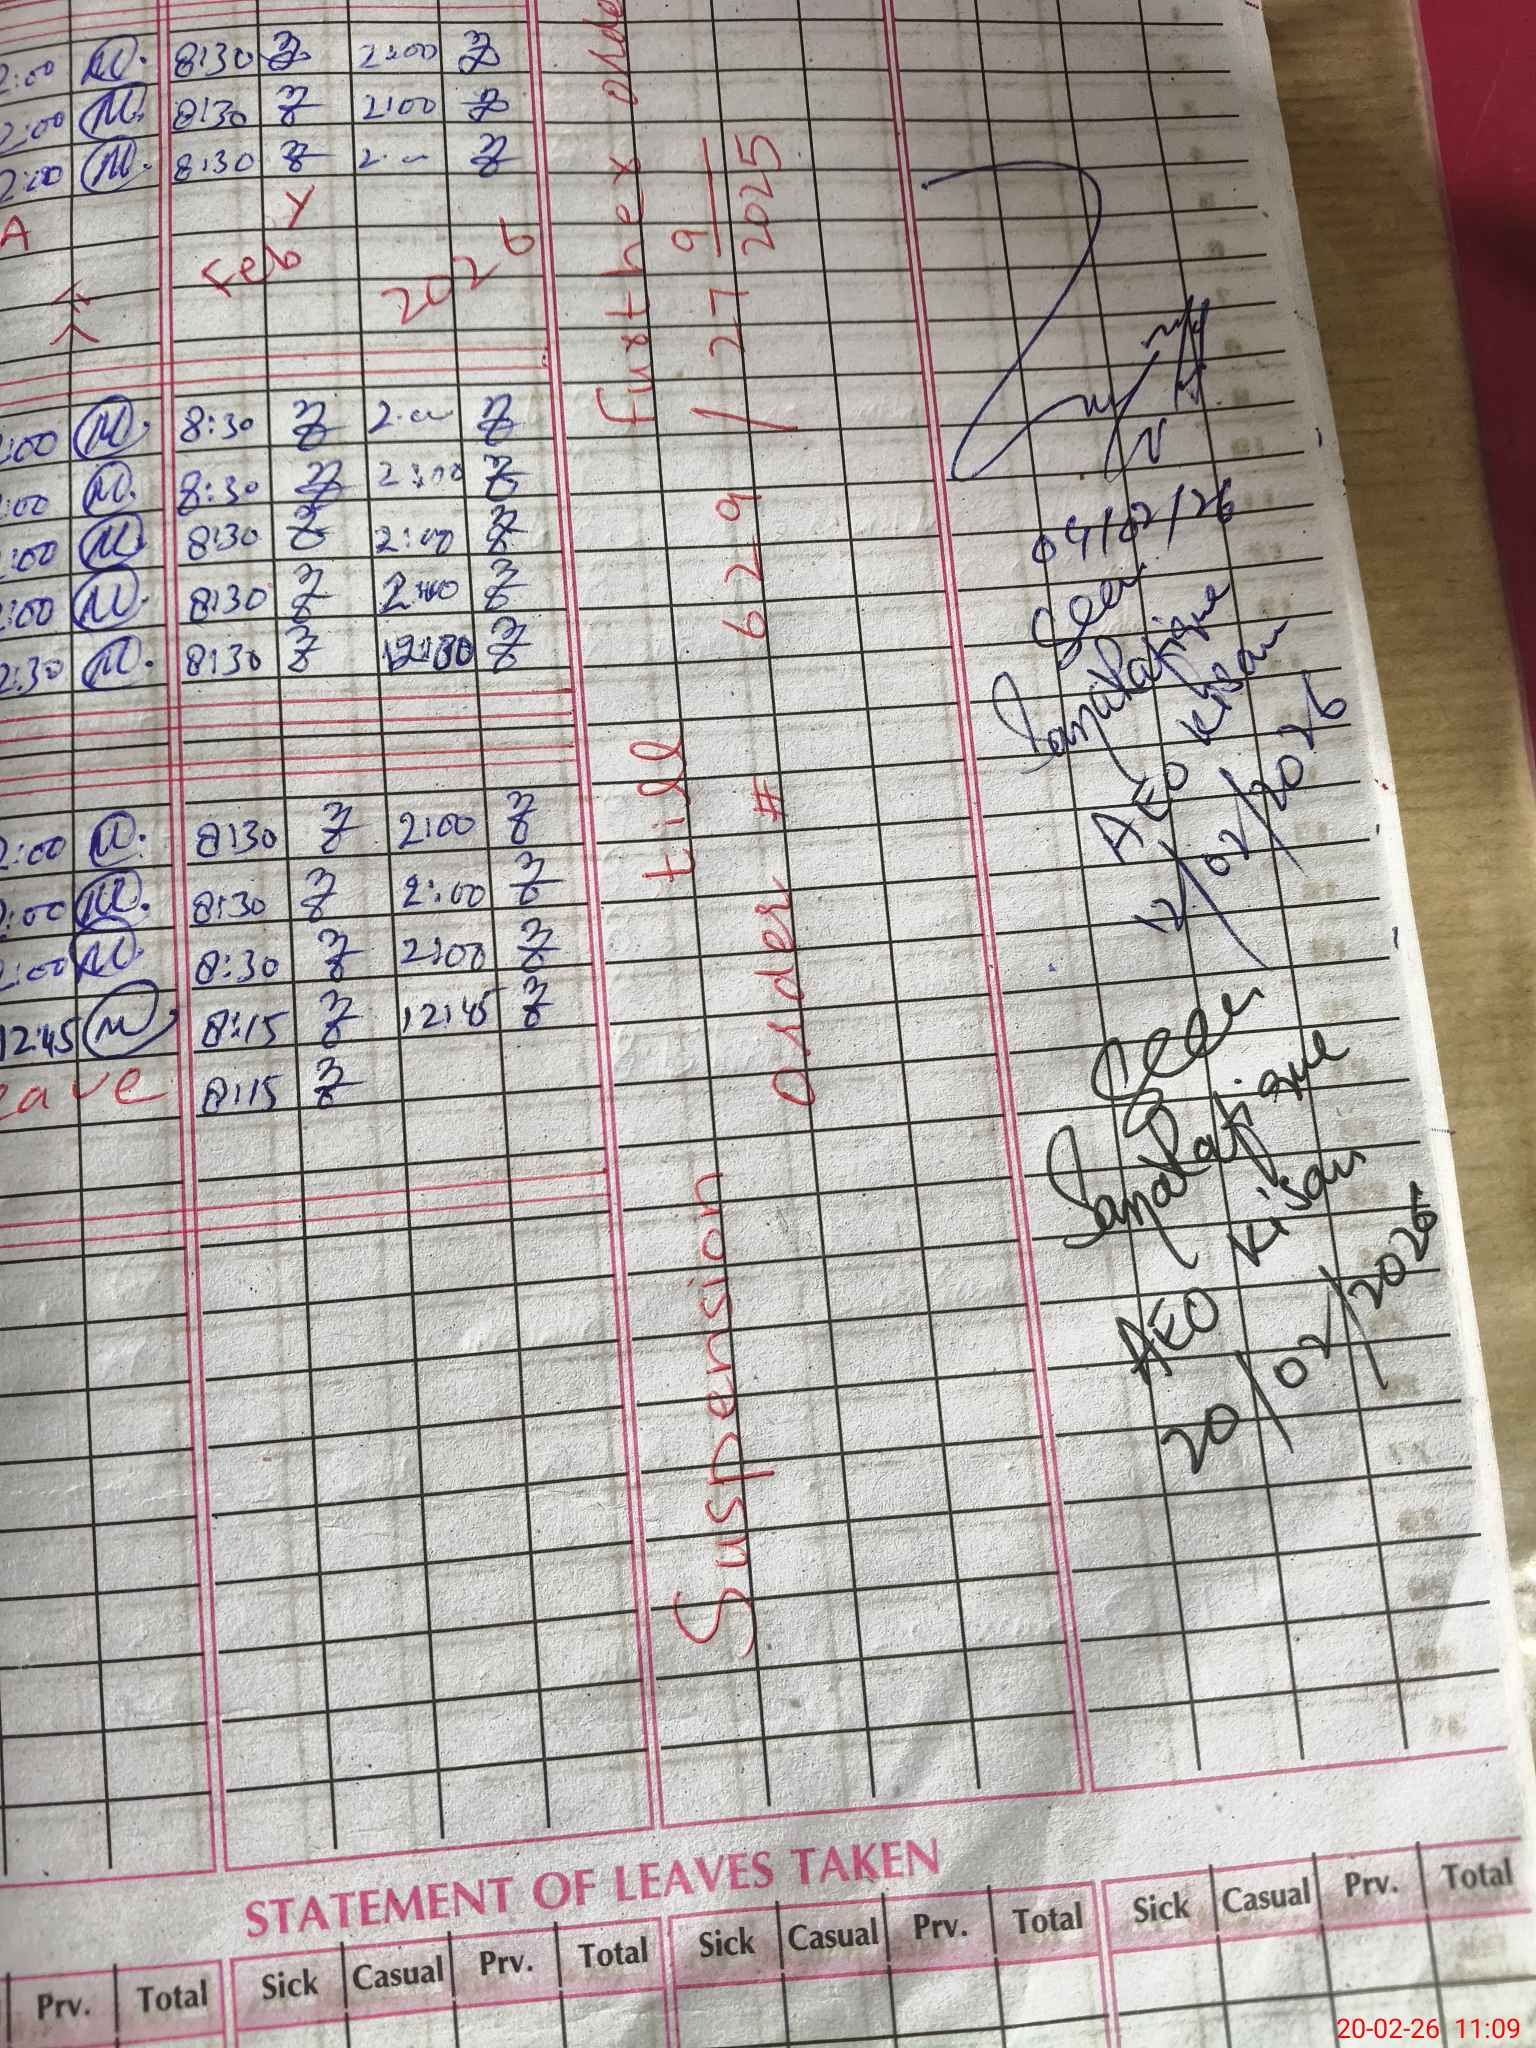 2:00 8:30 2:00
2:00 8:30 2:00
2:00 8:30 2.—
A
Feb Y 2026
:00 8:30 2.—
:00 8:30 2:00
:00 8:30 2:00
2:00 8:30 2:00
2:30 8:30 12:30
2:00 8:30 2:00
2:00 8:30 2:00
2:00 8:30 2:00
12:45 8:15 12:45
eave 8:15
Suspension till further orde
Order # 629 / 27 9 / 2025
04/02/26
Seen
AEO Kisan
12/02/2026
Seen
AEO Kisan
20/02/2026
STATEMENT OF LEAVES TAKEN
Prv. Total Sick Casual Prv. Total Sick Casual Prv. Total Sick Casual Prv. Total
20-02-26 11:09